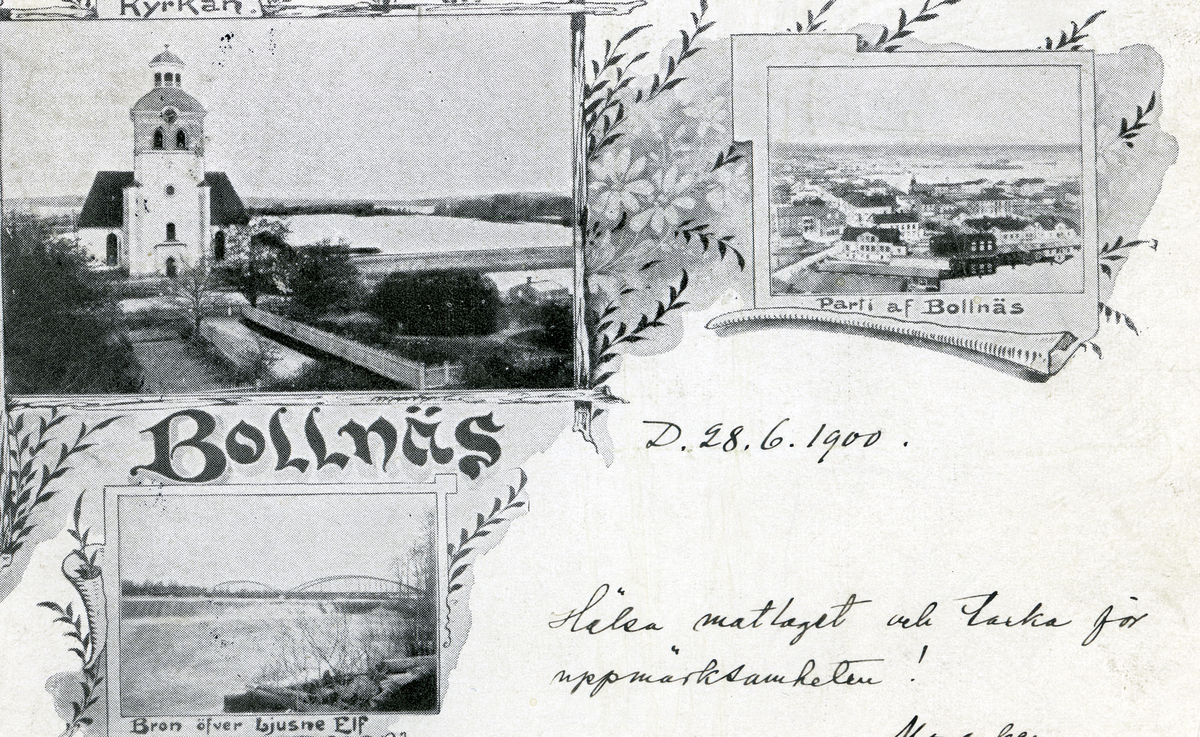 Kyrkan.
Parti af Bollnäs
Bollnäs
D. 28.6.1900.
Hälsa matlaget och tacka för
uppmärksamheten!
Bron öfver Ljusne Elf